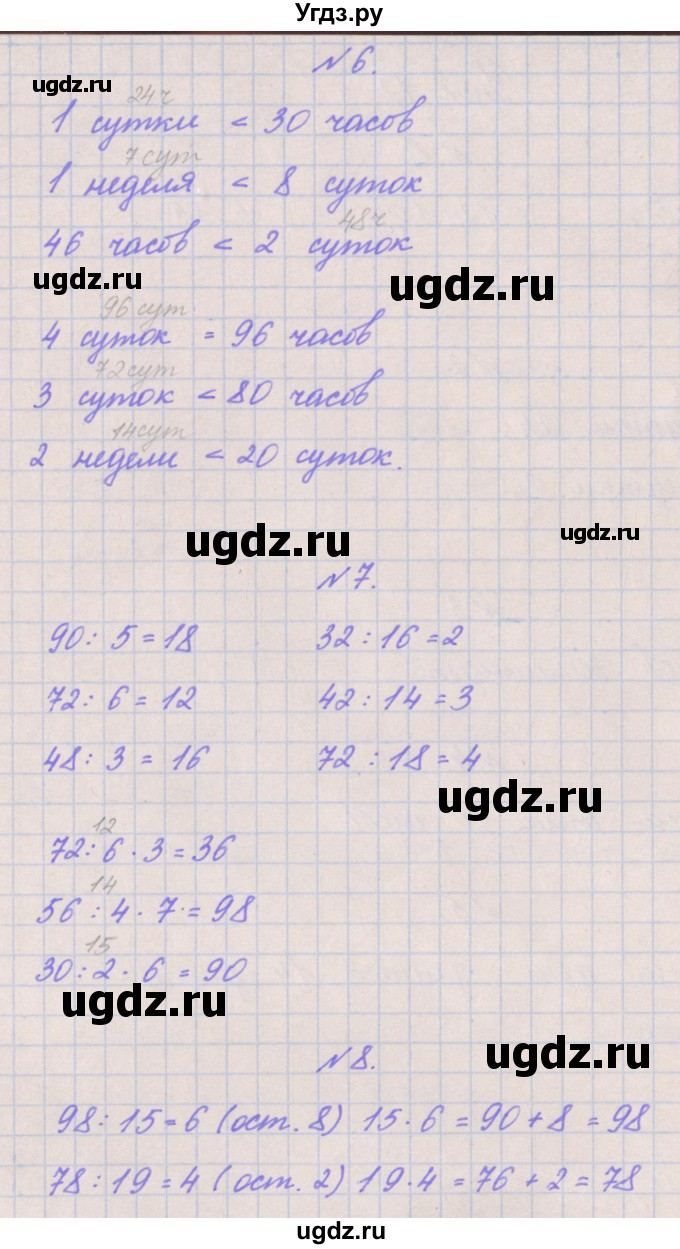 Угдз.ру
№ 6.
ugdz.ru
24ч
1 сутки < 30 часов
7 сут
1 неделя < 8 суток
48ч
46 часов < 2 суток
ugdz.ru
ugdz.ru
96 сут
4 суток = 96 часов
72 сут
3 суток < 80 часов
14 сут
2 недели < 20 суток.
ugdz.ru
ugdz.ru
№ 7.
90 : 5 = 18 32 : 16 = 2
72 : 6 = 12 42 : 14 = 3
48 : 3 = 16 72 : 18 = 4
ugdz.ru
12
72 : 6 · 3 = 36
14
56 : 4 · 7 = 98
15
30 : 2 · 6 = 90
ugdz.ru
ugdz.ru
№ 8.
98 : 15 = 6 (ост. 8) 15 · 6 = 90 + 8 = 98
78 : 19 = 4 (ост. 2) 19 · 4 = 76 + 2 = 78
ugdz.ru